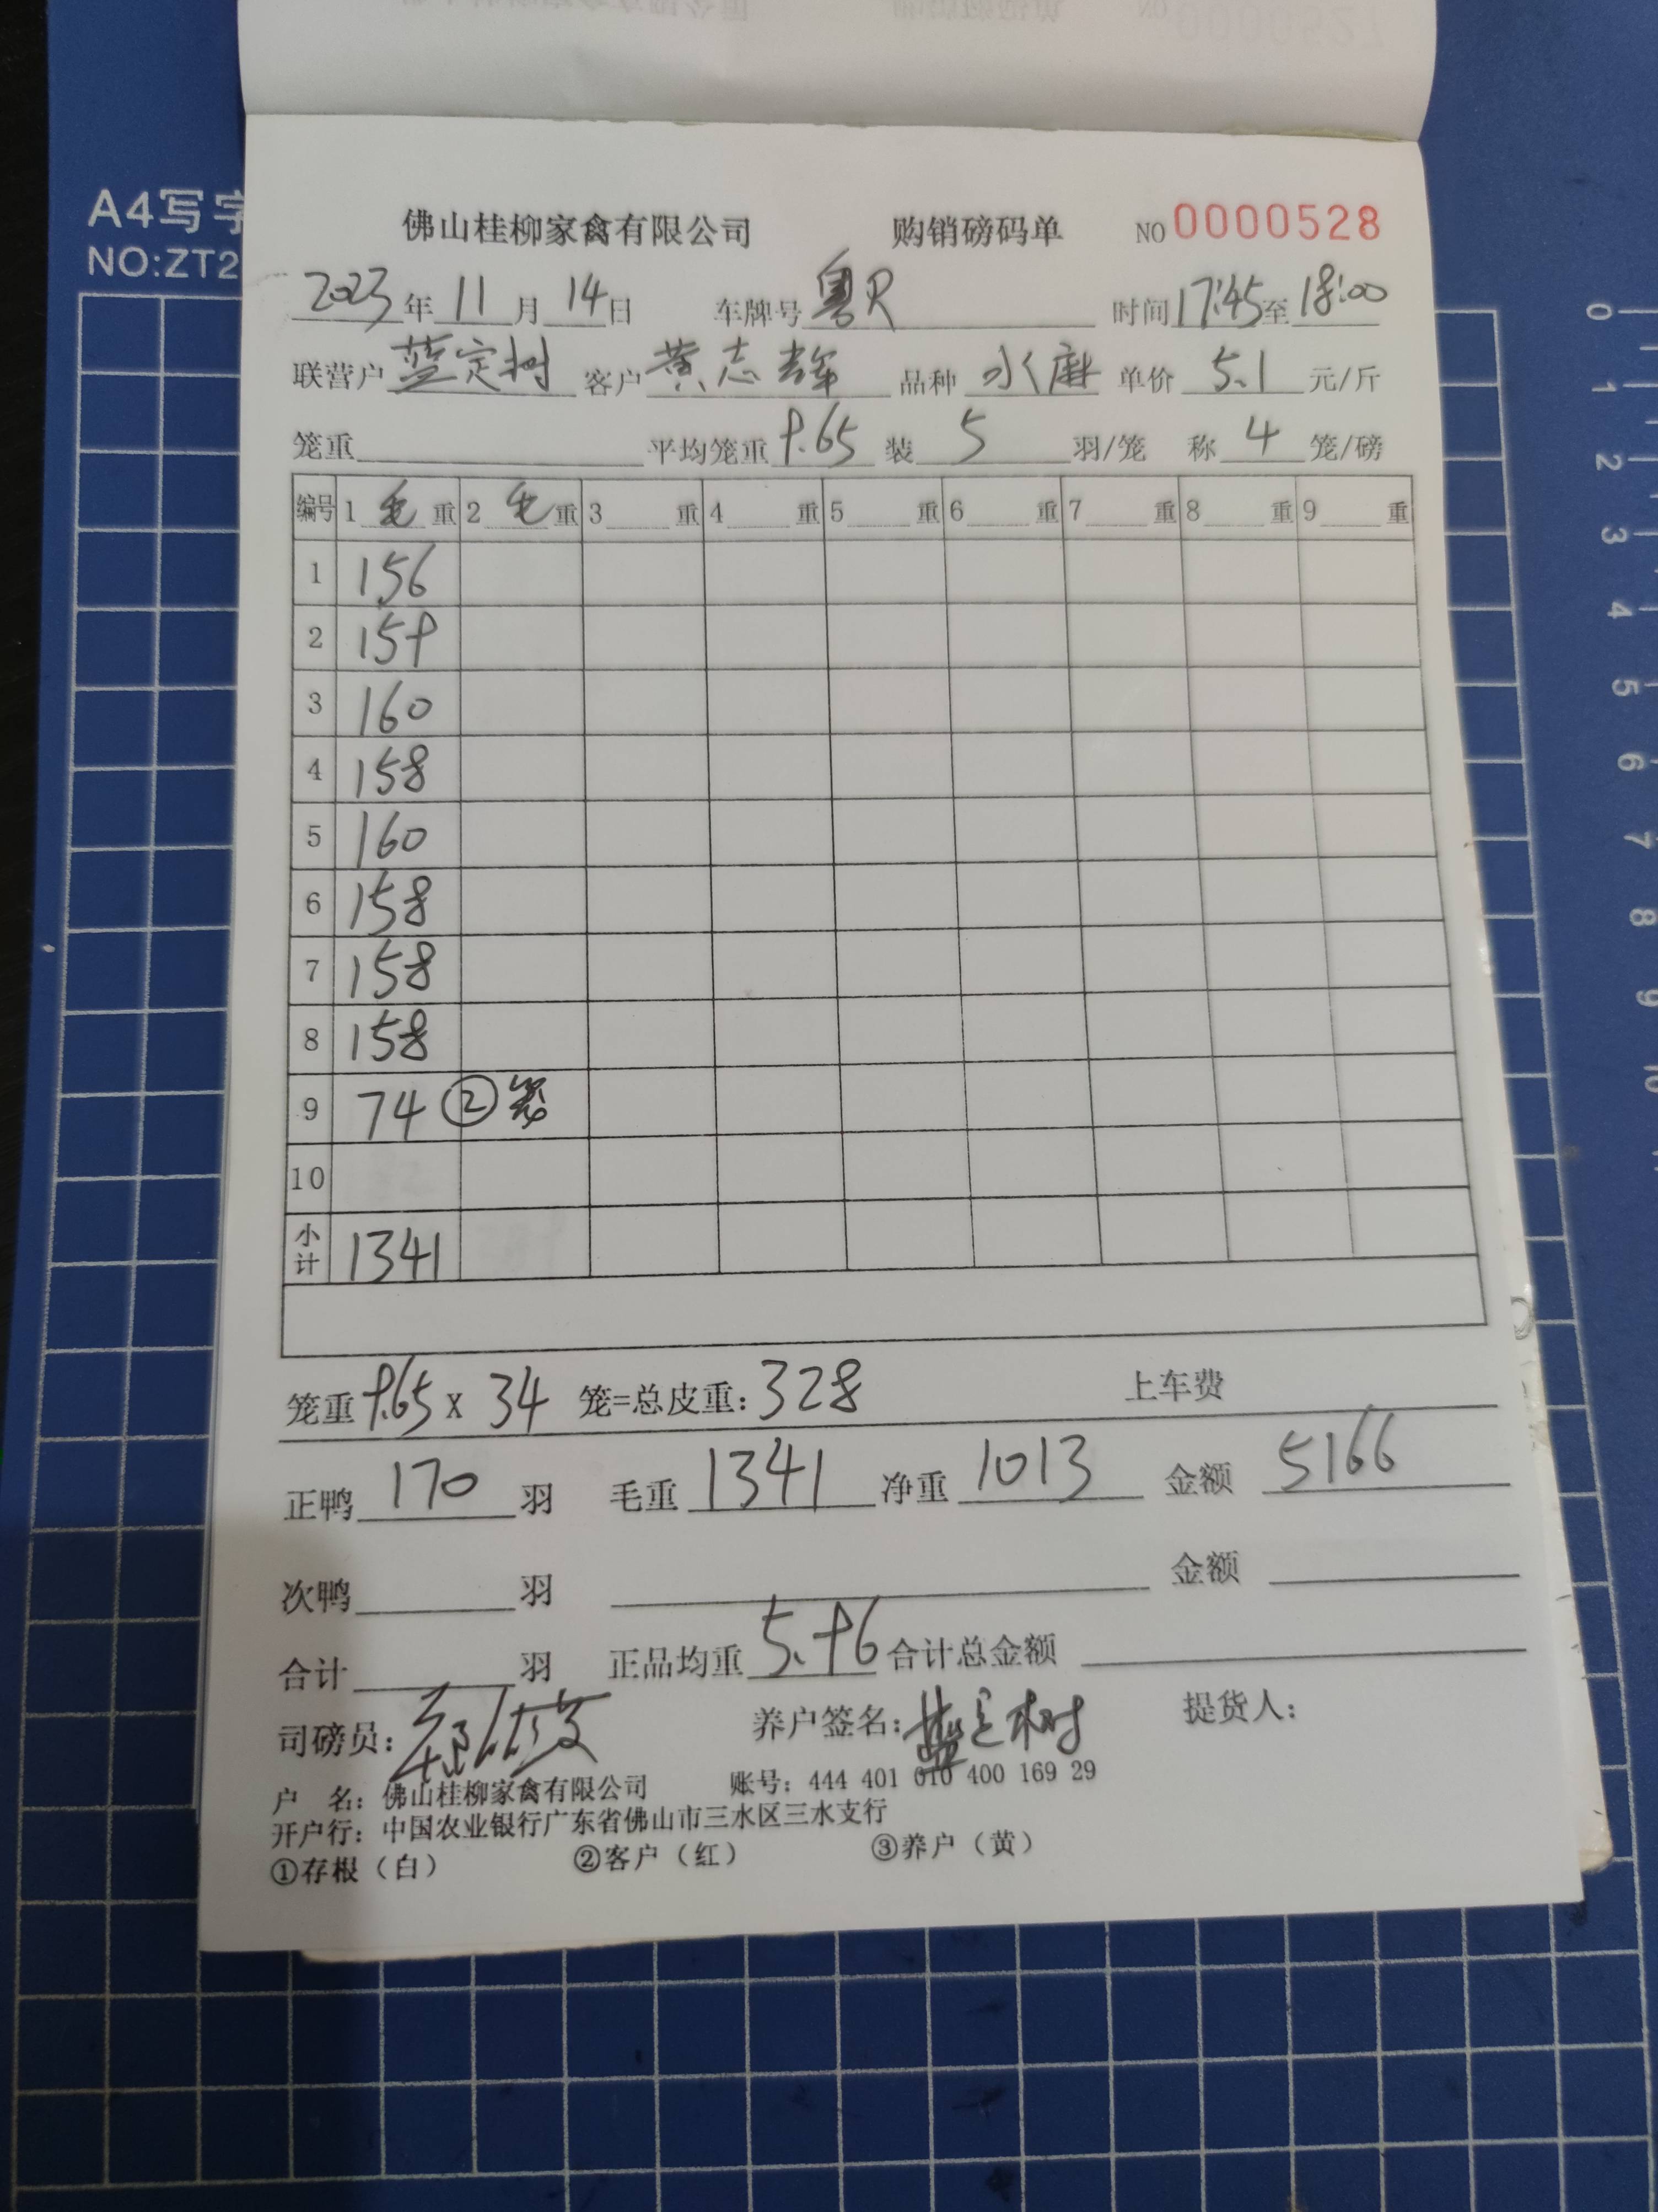 A4写字
NO:ZT2
佛山桂柳家禽有限公司 购销磅码单 NO 0000528
2023年11月14日 车牌号 粤R 时间 17:45至18:00
联营户 蓝定树 客户 黄志辉 品种 水麻 单价 5.1 元/斤
笼重 平均笼重 9.65 装 5 羽/笼 称 4 笼/磅
编号 1 毛 重 2 毛 重 3 重 4 重 5 重 6 重 7 重 8 重 9 重
1 156
2 159
3 160
4 158
5 160
6 158
7 158
8 158
9 74 ② 笼
10
小计 1341
笼重 9.65 X 34 笼=总皮重: 328 上车费
正鸭 170 羽 毛重 1341 净重 1013 金额 5166
次鸭 羽 金额
合计 羽 正品均重 5.96 合计总金额
司磅员: 养户签名: 蓝定树 提货人:
户 名: 佛山桂柳家禽有限公司 账号: 444 401 010 400 169 29
开户行: 中国农业银行广东省佛山市三水区三水支行
①存根（白） ②客户（红） ③养户（黄）
0
1
2
3
4
5
6
7
8
9
10